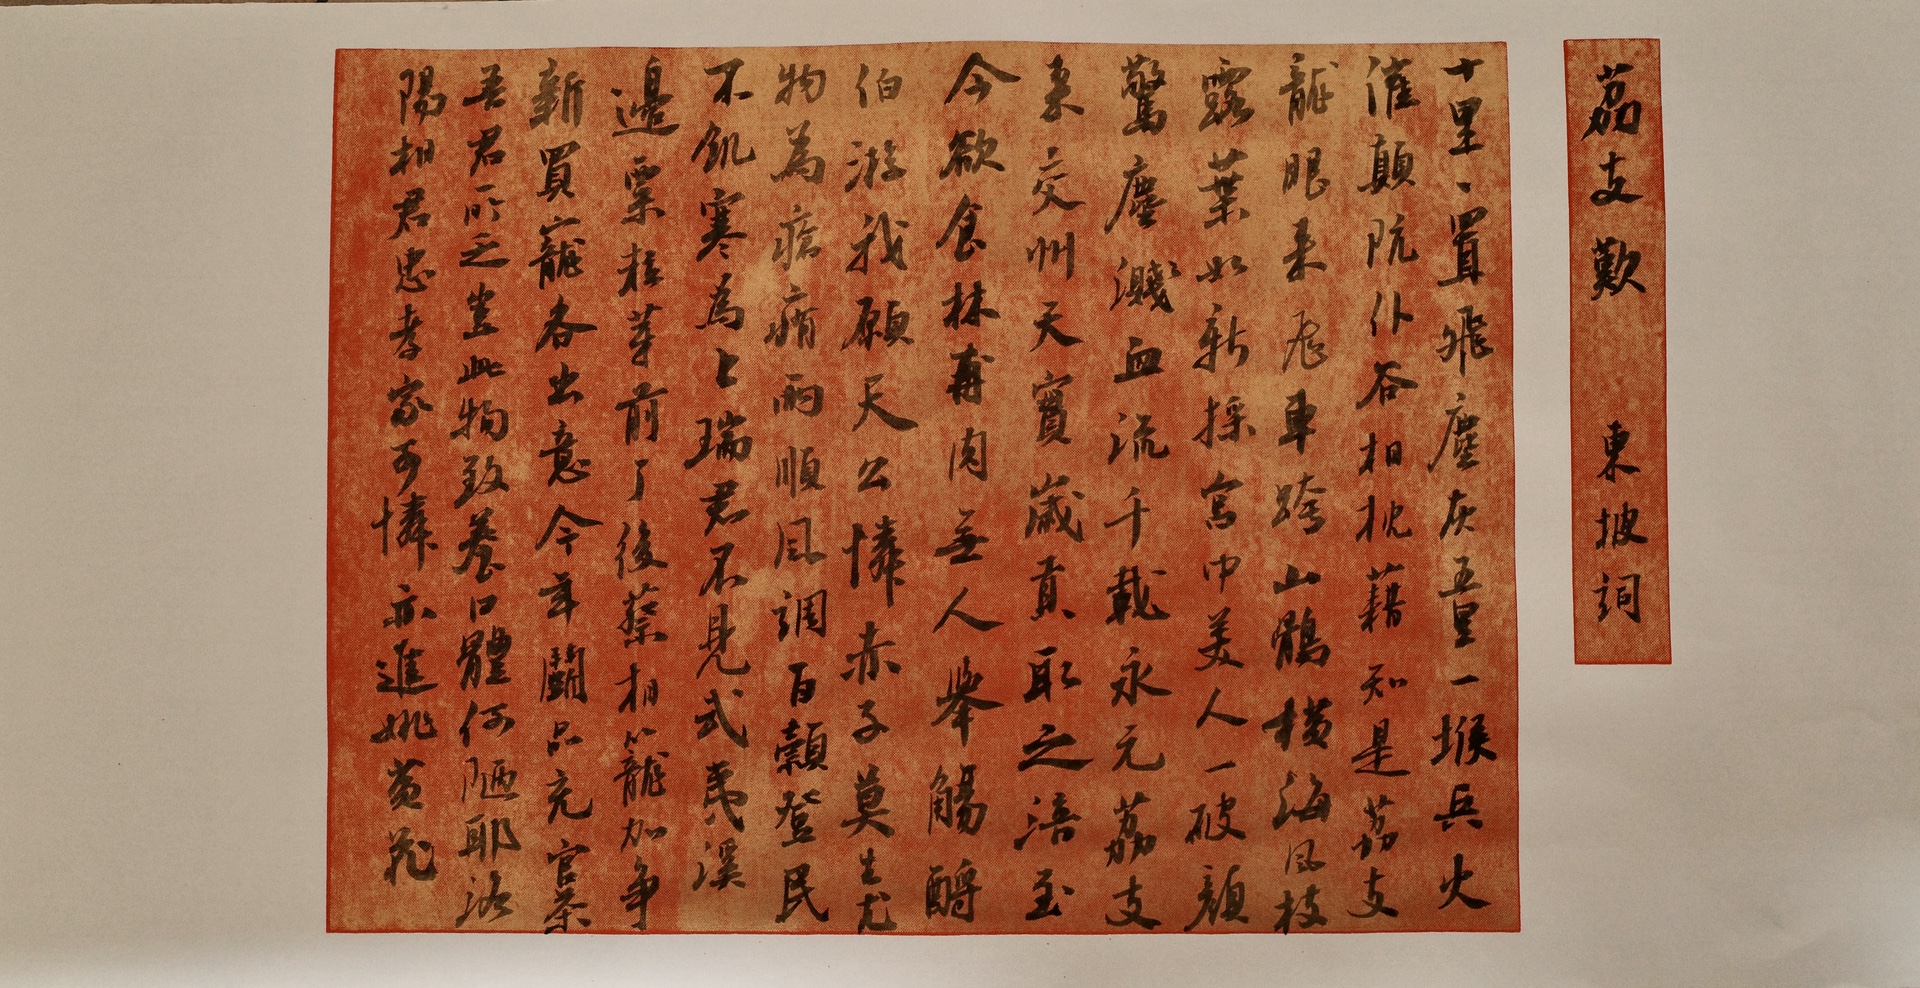 荔支歎 東坡詞
十里、置飛塵灰五里一堠兵火
催顛阬仆谷相枕藉知是荔支
龍眼来飛車跨山鶻橫海風枝
露葉如新採宮中美人一破顏
驚塵濺血流千載永元荔支
来交州天寶歲貢取之涪至
今欲食林甫肉無人舉觴酹
伯游我願天公憐赤子莫生尤
物為瘡痏雨順風調百穀登民
不飢寒為上瑞君不見武夷溪
邊粟粒芽前丁後蔡相籠加爭
新買寵各出意今年鬪品充官茶
吾君所乏豈此物致養口體何陋耶洛
陽相君忠孝家可憐亦進姚黃花